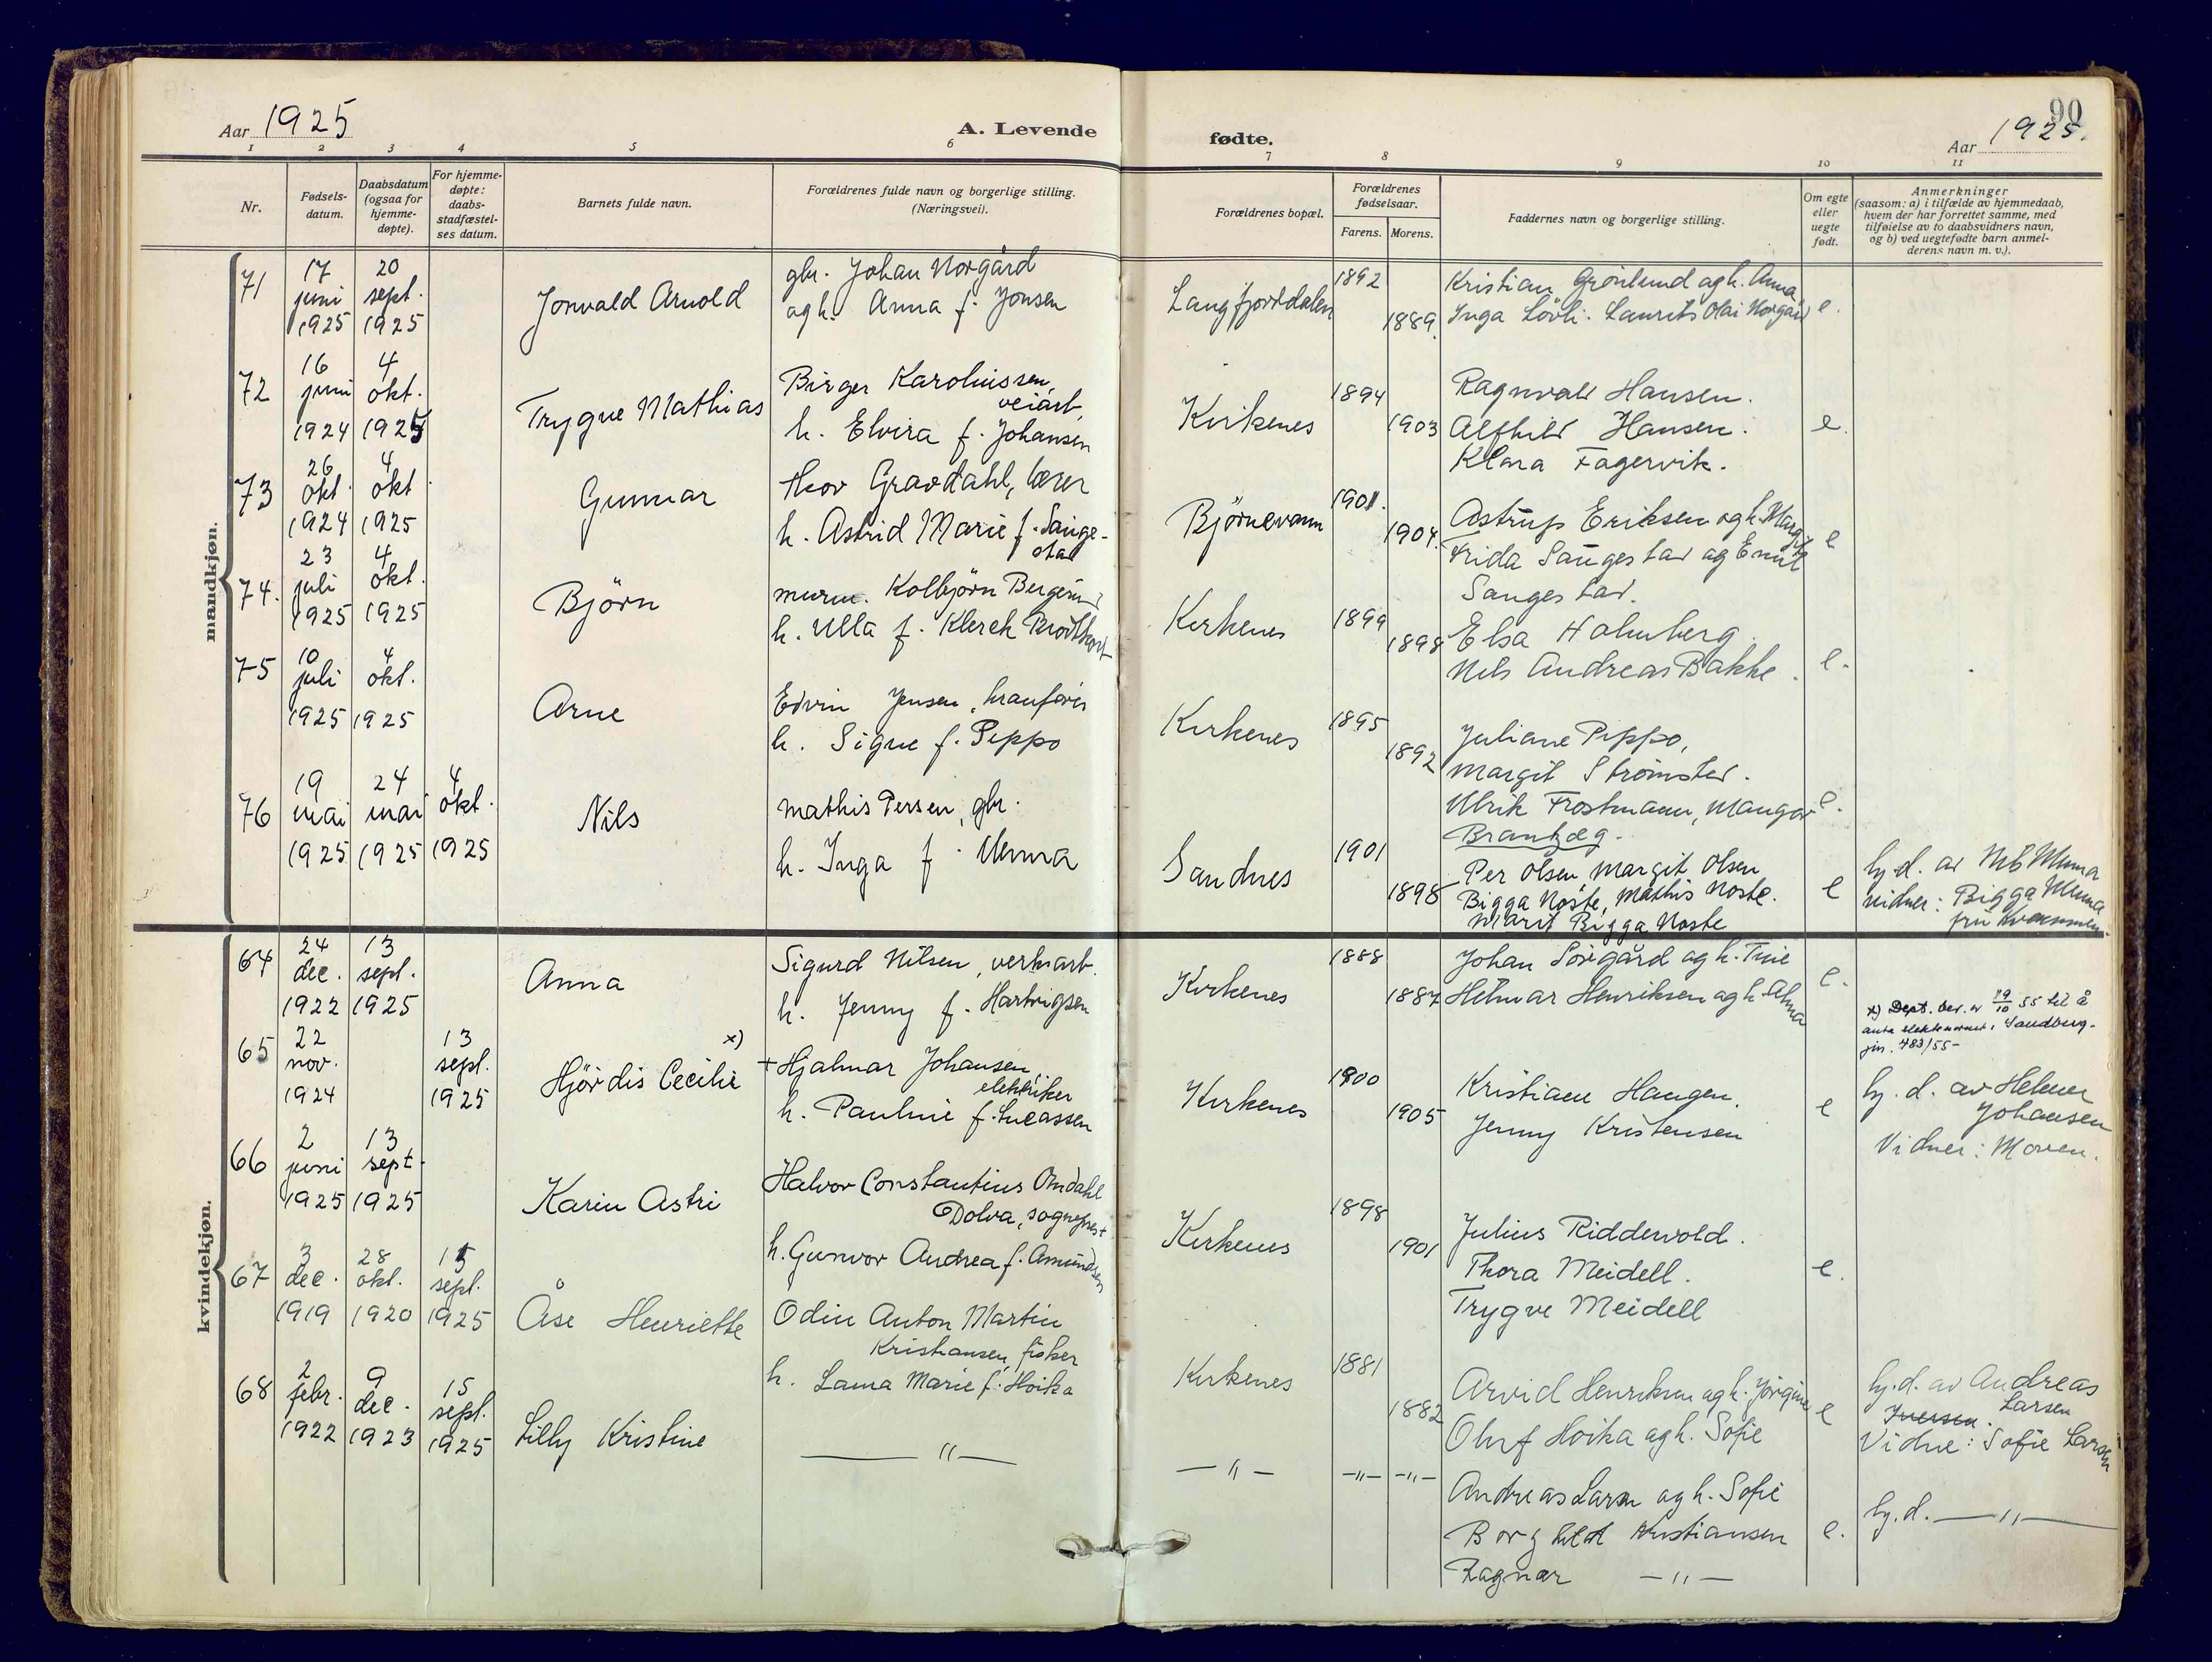 Aar 1925
A. Levende
fødte.
90
Aar 1925.
1 2 3 4 5 6 7 8 9 10 11
Nr.
Fødsels-
datum.
Daabsdatum
(ogsaa for
hjemme-
døpte).
For hjemme-
døpte:
daabs-
stadfæstel-
ses datum.
Barnets fulde navn.
Forældrenes fulde navn og borgerlige stilling.
(Næringsvei).
Forældrenes bopæl.
Forældrenes
fødselsaar.
Farens. Morens.
Faddernes navn og borgerlige stilling.
Om egte
eller
uegte
født.
Anmerkninger
(saasom: a) i tilfælde av hjemmedaab,
hvem der har forrettet samme, med
tilføielse av to daabsvidners navn,
og b) ved uegtefødte barn anmel-
derens navn m. v.).
mandkjøn.
71
17
juni
1925
20
sept.
1925
Jorvald Arnold
gbr. Johan Norgård
og h. Anna f. Jonsen
Langfjorddalen
1892
1889
Kristian Grönlund og h. Anna
Inga Lövli. Laurits Olai Norgård
e.
72
16
juni
1924
4
okt.
1925
Trygve Mathias
Birger Karoliussen,
veiarb,
h. Elvira f. Johansen
Kirkenes
1894
1903
Ragnvald Hansen.
Alfhild Hansen.
Klara Fagervik.
e.
73
26
okt.
1924
4
okt
1925
Gunnar
Thor Gravdahl, lærer
h. Astrid Marie f. Sauge-
stad
Björnevann
1901.
1904.
Astrup Eriksen og h. Margit
Frida Saugestad og Emil
Saugestad.
e
74.
23
juli
1925
4
okt.
1925
Björn
murm. Kolbjörn Bergerud
h. Ulla f. Klerck Brodtkorb
Kirkenes
1899
1898
Elsa Holmberg.
Nils Andreas Bakke.
e.
75
10
juli
1925
4
okt.
1925
Arne
Edvin Jensen, kranförer
h. Signe f. Pippo
Kirkenes
1895
1892
Juliane Pippo,
Margit Strömstad.
Ulrik Frostmann, Mangor
Brantzæg.
e.
76
19
mai
1925
24
mai
1925
4
okt.
1925
Nils
Mathis Persen, gbr.
h. Inga f. Menna
Sandnes
1901
1898
Per Olsen, Margit Olsen
Bigga Noste, Mathis Noste.
Marit Bigga Noste
e
hj. d. av
vidner: Bigga
fru
kvindekjøn.
64
24
dec.
1922
13
sept.
1925
Anna
Sigurd Nilsen, verksarb.
h. Jenny f. Hartvigsen
Kirkenes
1888
1887
Johan Sörgård og h. Tine
Helmar Henriksen og h. Alma
e.
65
22
nov.
1924
13
sept.
1925
x)
Hjördis Cecilie
+ Hjalmar Johansen,
elektriker
h. Pauline f. Lucassen
Kirkenes
1900
1905
Kristiane Haugen.
Jenny Kristensen
e
x) Dept. bev. av 19/10 55 til å
anta slektsnavnet: Sandberg-
jnr. 483/55-
hj. d. av Helmer
Johansen
Vidner: Moren.
66
2
juni
1925
13
sept.
1925
Karin Astri
Halvor Constantius Omdahl
Dolva, sogneprest
h. Gunvor Andrea f. Amundsen
Kirkenes
1898
1901
Julius Riddervold.
Thora Meidell.
Trygve Meidell
e.
67
3
dec.
1919
28
okt.
1920
15
sept.
1925
Åse Henriette
Odin Anton Martin
Kristiansen, fisker
h. Laura Marie f. Hoika
Kirkenes
1881
1882
Arvid Henriksen og h. Jörgine
Oluf Hoika og h. Sofie
e
hj. d. av Andreas
Iversen. Larsen
Vidne: Sofie Larsen
68
2
febr.
1922
9
dec.
1923
15
sept.
1925
Lilly Kristine
— " —
— " —
—"— —"—
Andreas Larsen og h. Sofie
Borghild Kristiansen
Ragnar — " —
e.
hj. d. — " —